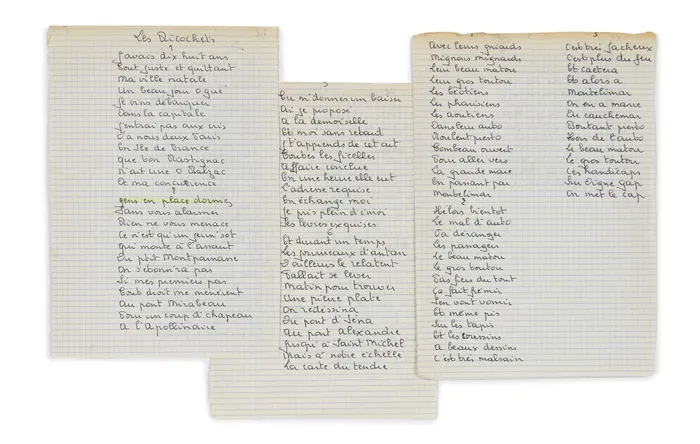 Les Ricochets
1
J'avais dix huit ans
Tout juste et quittant
Ma ville natale
Un beau jour O gué
Je vins débarquer
Dans la capitale
J'entrai pas aux cris
D'à nous deux Paris
En Ile de France
que bon Rastignac
N'ait une O Balzac
De ma concurrence
2
gens en place dormez
Sans vous alarmer
Rien ne vous menace
Ce n'est qu'un jeun' sot
qui monte à l'assaut
Du p'tit Montparnasse
On s'étonn'ra pas
Si mes premiers pas
Tout droit me menèrent
Au pont Mirabeau
Pour un coup d'chapeau
A l'Apollinaire
5
Tu m'donnes un baiser
Ai je proposé
A la demoiselle
Et moi sans retard
J't'apprends de cet art
Toutes les ficelles
Affaire conclue
En une heure elle eut
L'adresse requise
En échange moi
Je pris plein d'émoi
Ses lèvres exquises
6
Et durant un temps
Les journeaux d'antan
D'ailleurs le relatent
Fallait se lever
Matin pour trouver
Une pierre plate
On redessina
Du pont d'Iéna
Au pont Alexandre
Jusqu'à Saint Michel
Mais à notre échelle
La carte du tendre
Avec leurs griards
Mignons mignards
Leur beau matou
Leur gros toutou
Les béotiens
Les pharisiens
Les aoutiens
Dans leur auto
Roulent presto
Tombeau ouvert
Pour aller vers
La grande mare
En passant par
Montelimar
2
Hélas bientôt
Le mal d'auto
Va déranger
Les passagers
Le beau matou
Le gros toutou
Pas fiers du tout
Ça fait frémir
S'en vont vomir
Et même pis
Sur les tapis
Et les coussins
A beaux dessins
C'est très malsain
C'est très facheux
C'est plus du jeu
Et caetera
Et alors a
Montelimar
On en a marre
Du cauchemar
Boutant presto
Hors de l'auto
Le beau matou
Le gros toutou
Ces handicaps
Sur Orgne Gap
On met le cap